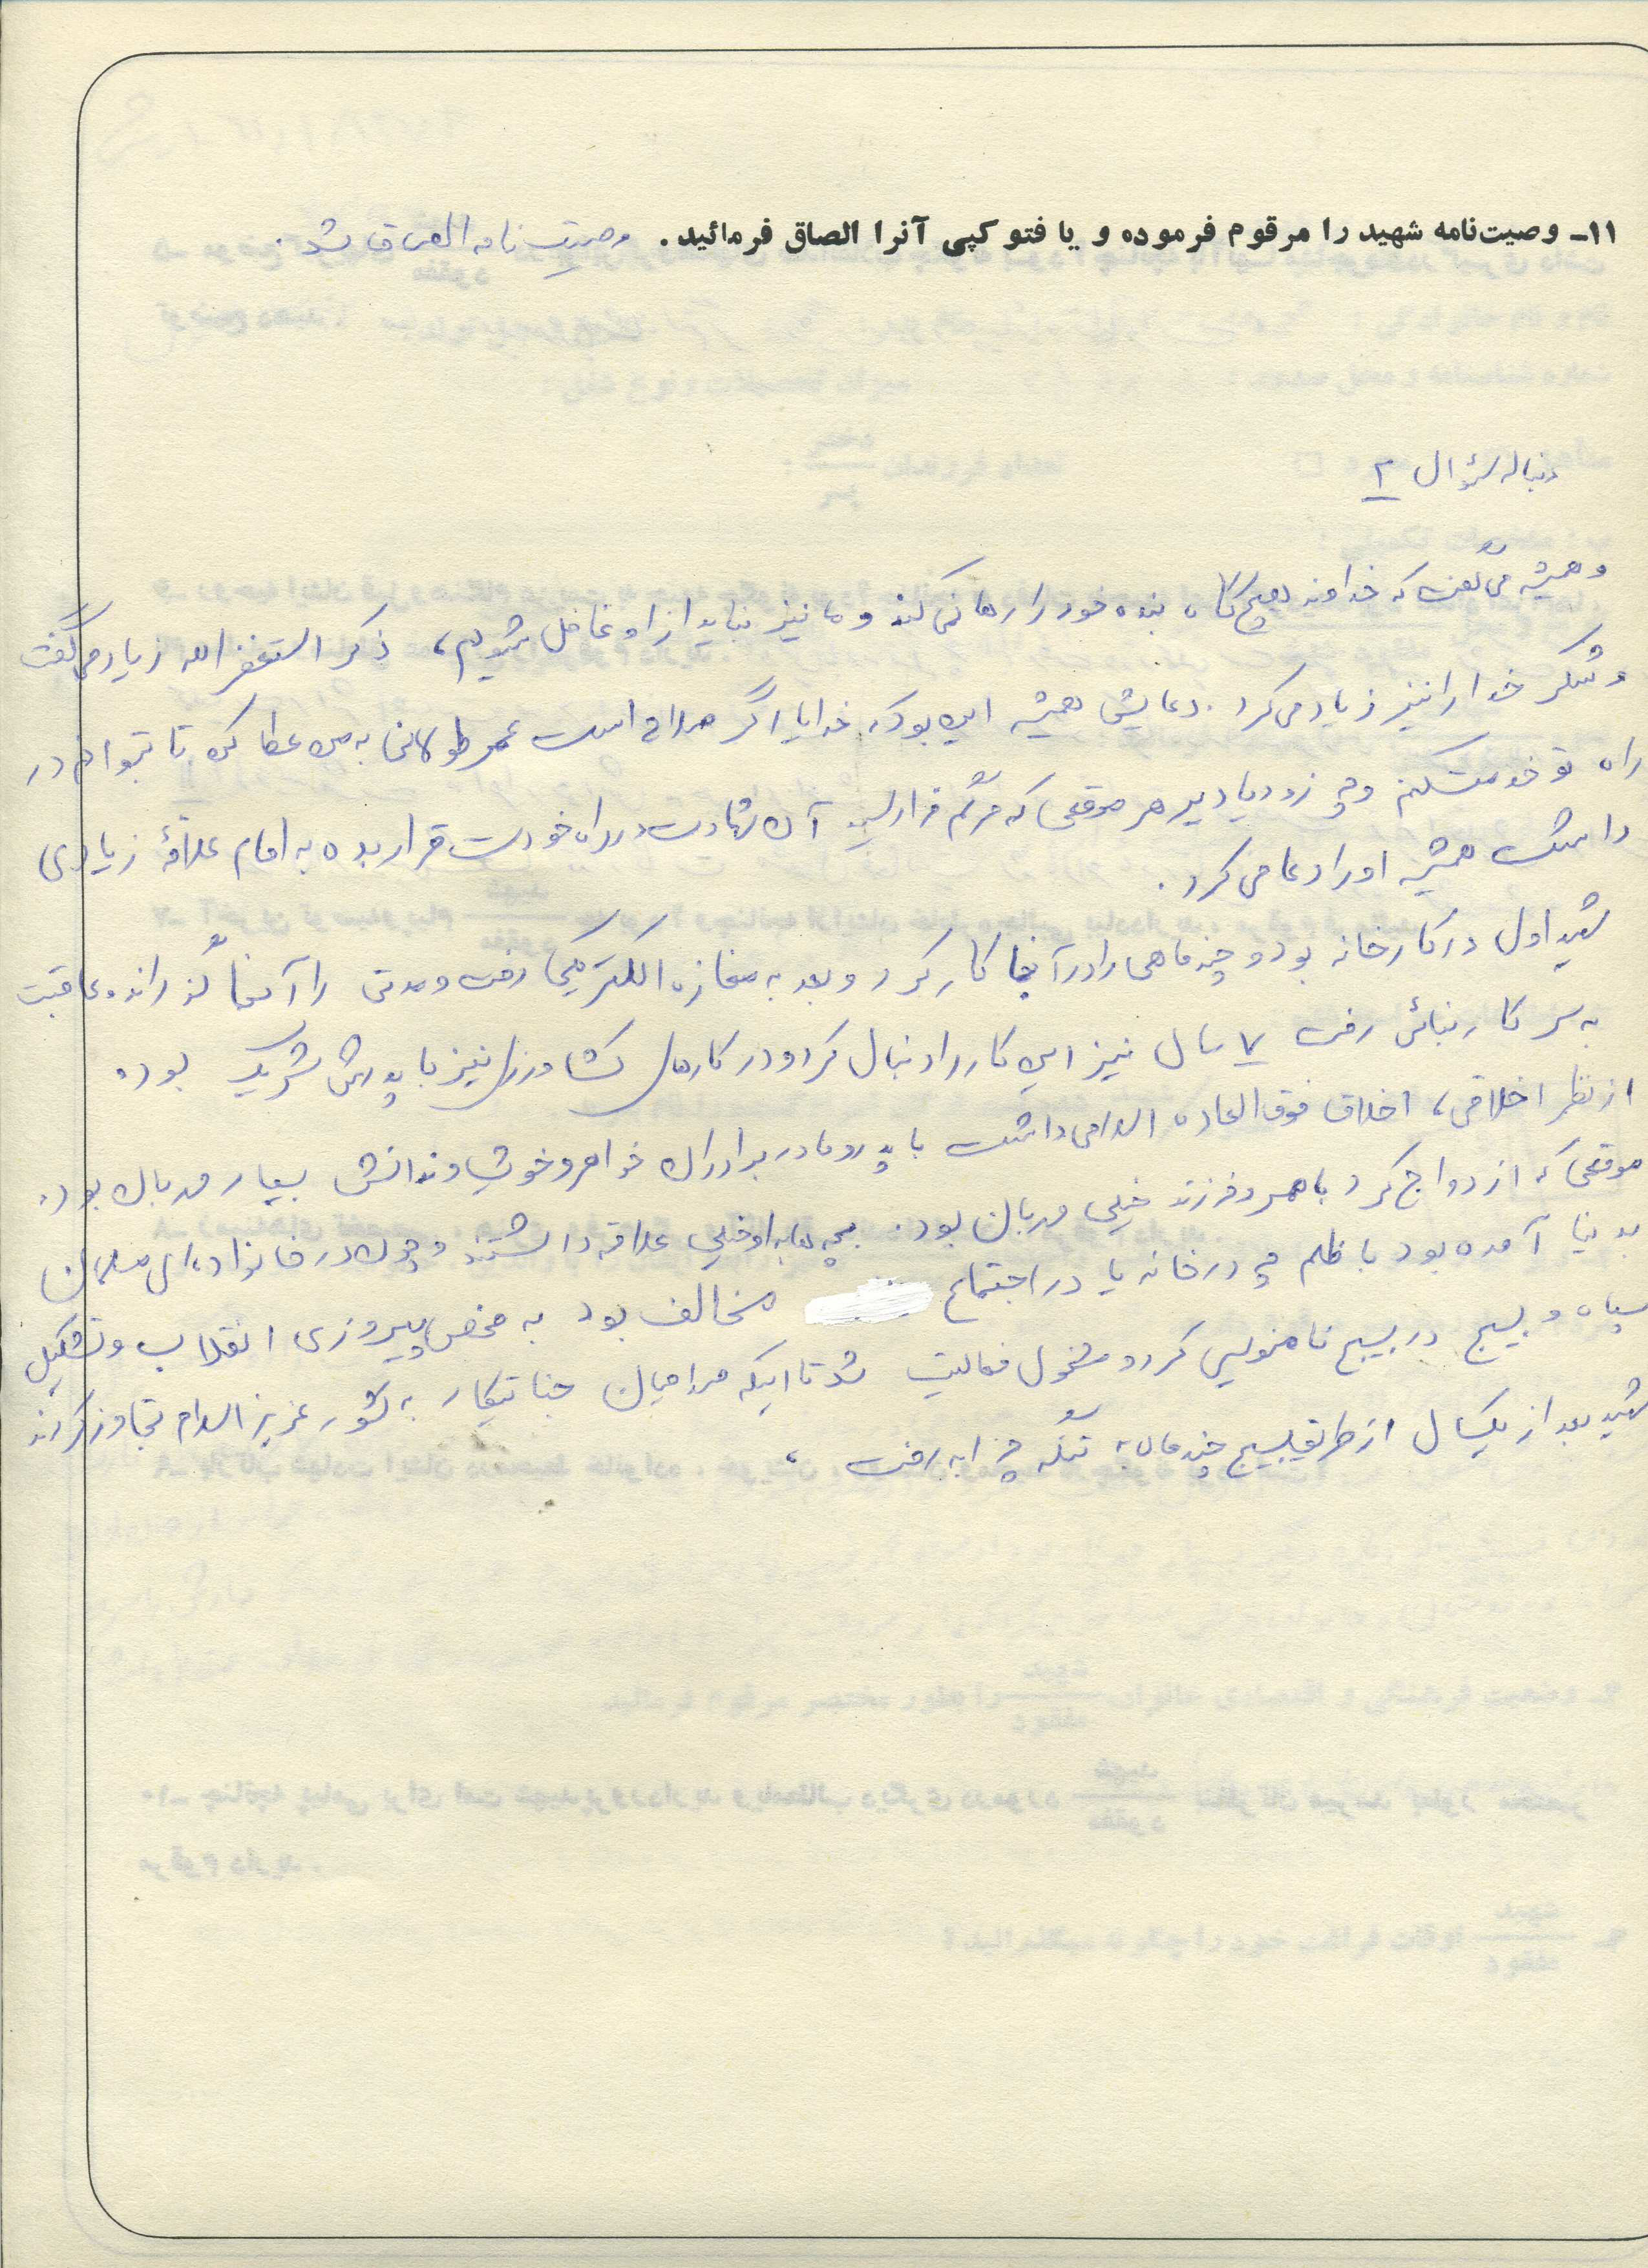 ۱۱ـ وصیت‌نامه شهید را مرقوم فرموده و یا فتوکپی آنرا الصاق فرمائید. وصیت نامه الصاق شد.
دنباله سؤال ۲
و همیشه می گفت که خداوند هیچ گاه بنده خود را رها نمی کند و ما نیز نباید از او غافل شویم، ذکر استغفر الله زیاد می گفت
و شکر خدا را نیز زیاد می کرد. دعایش همیشه این بود که خدایا اگر صلاح است عمر طولانی به من عطا کن تا بتوانم در
راه تو خدمت کنم و چه زود یا دیر هر موقعی که مرگم فرا رسید آن شهادت در راه خودت قرار بده به امام علاقهٔ زیادی
داشت همیشه او را دعا می کرد.
شهید اول در کارخانه بود و چند ماهی را در آنجا کار کرد و بعد به مغازه الکتریکی رفت و مدتی را آنجا گذراند، عاقبت
به سر کار بنائی رفت ۷ سال نیز این کار را دنبال کرد و در کارهای کشاورزی نیز با پدرش شریک بود.
از نظر اخلاقی، اخلاق فوق العاده اسلامی داشت با پدر و مادر برادران خواهر و خویشاوندانش بسیار مهربان بود.
موقعی که ازدواج کرد با همسر و فرزند خیلی مهربان بود. بچه ها به او خیلی علاقه داشتند و چون در خانواده ای مسلمان
بدنیا آمده بود با ظلم چه در خانه یا در اجتماع مخالف بود به محض پیروزی انقلاب و تشکیل
سپاه و بسیج در بسیج نامنویسی کرد و مشغول فعالیت شد تا اینکه صدامیان جنایتکار به کشور عزیز اسلام تجاوز کردند
شهید بعد از یکسال از طریق بسیج چند ماه به تنگه چزابه رفت،